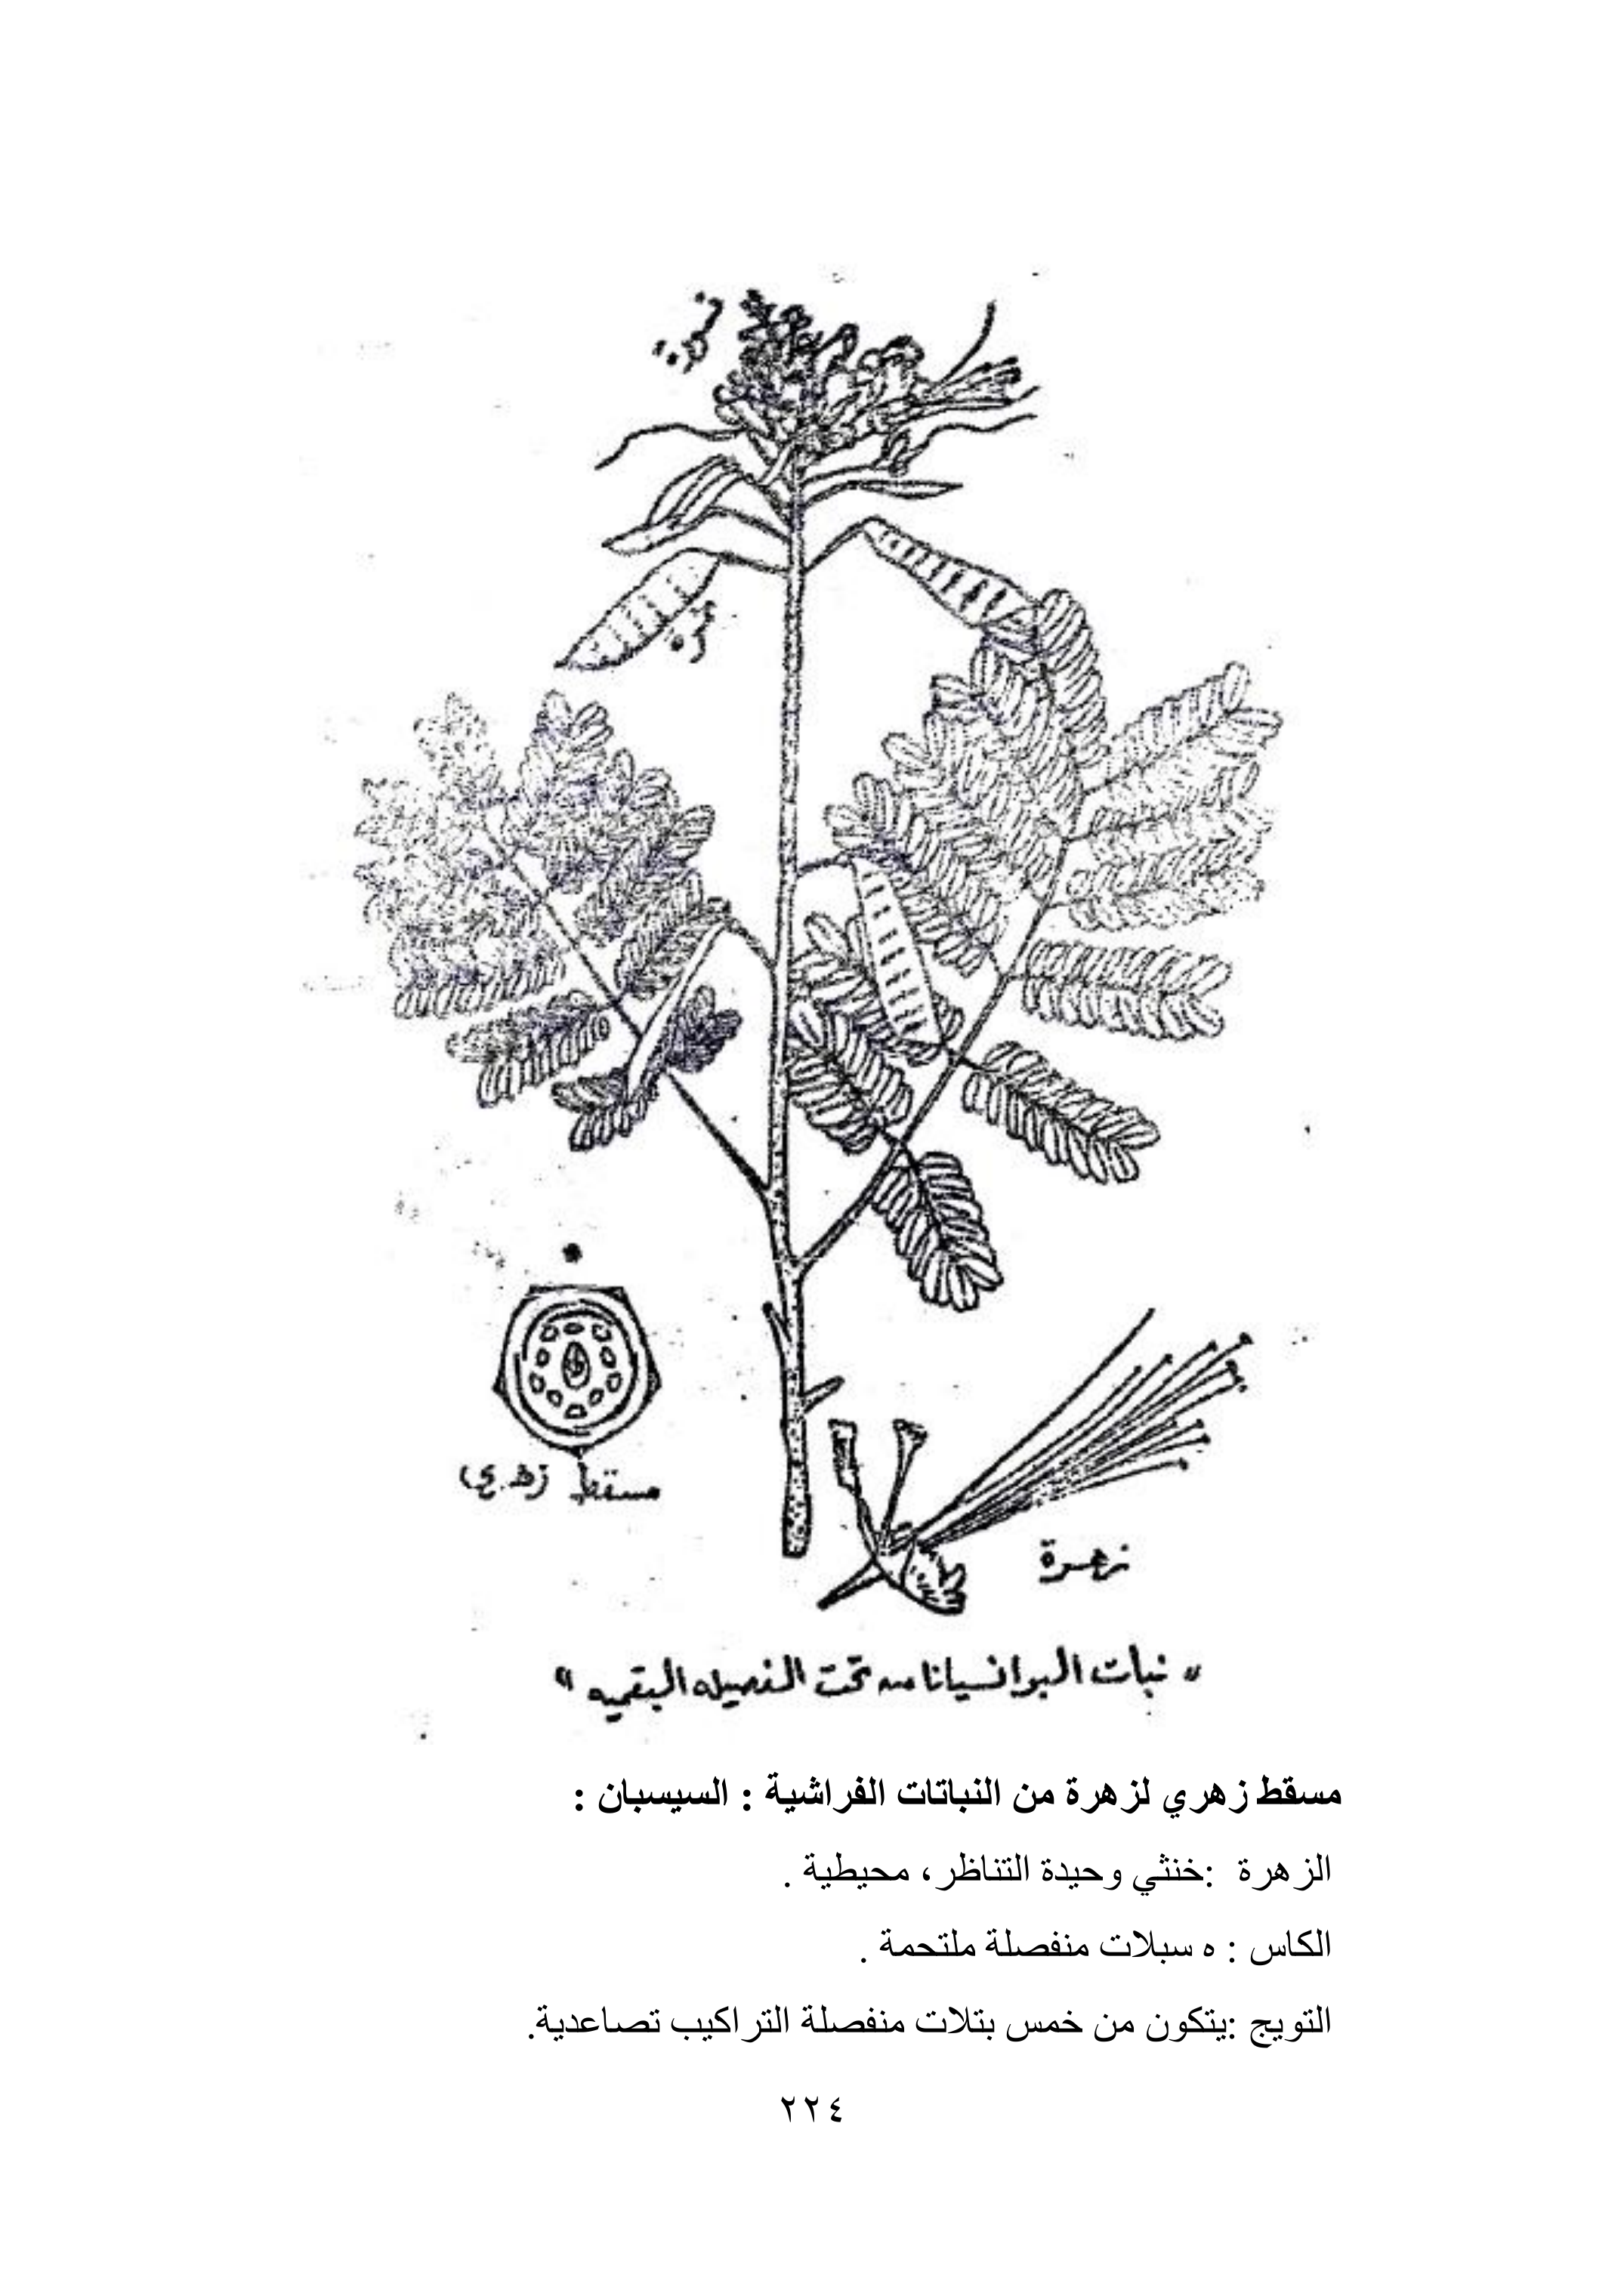 ثمرة
مسقط زهري
زهرة
" نبات البوانسيانا من تحت الفصيله البقميه "
مسقط زهري لزهرة من النباتات الفراشية : السيسبان :
الزهرة :خنثي وحيدة التناظر، محيطية .
الكاس : ٥ سبلات منفصلة ملتحمة .
التويج :يتكون من خمس بتلات منفصلة التراكيب تصاعدية.
٢٢٤